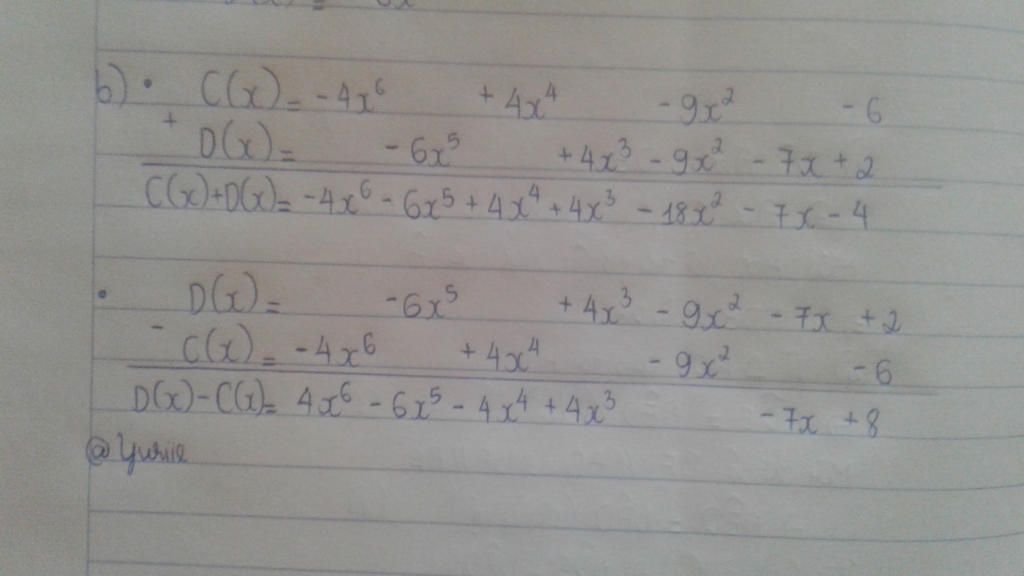 b) • C(x) = -4x⁶ + 4x⁴ - 9x² - 6
+ D(x) = -6x⁵ + 4x³ - 9x² - 7x + 2
C(x)+D(x) = -4x⁶ - 6x⁵ + 4x⁴ + 4x³ - 18x² - 7x - 4
• D(x) = -6x⁵ + 4x³ - 9x² - 7x + 2
- C(x) = -4x⁶ + 4x⁴ - 9x² - 6
D(x)-C(x) = 4x⁶ - 6x⁵ - 4x⁴ + 4x³ - 7x + 8
@Yuriie